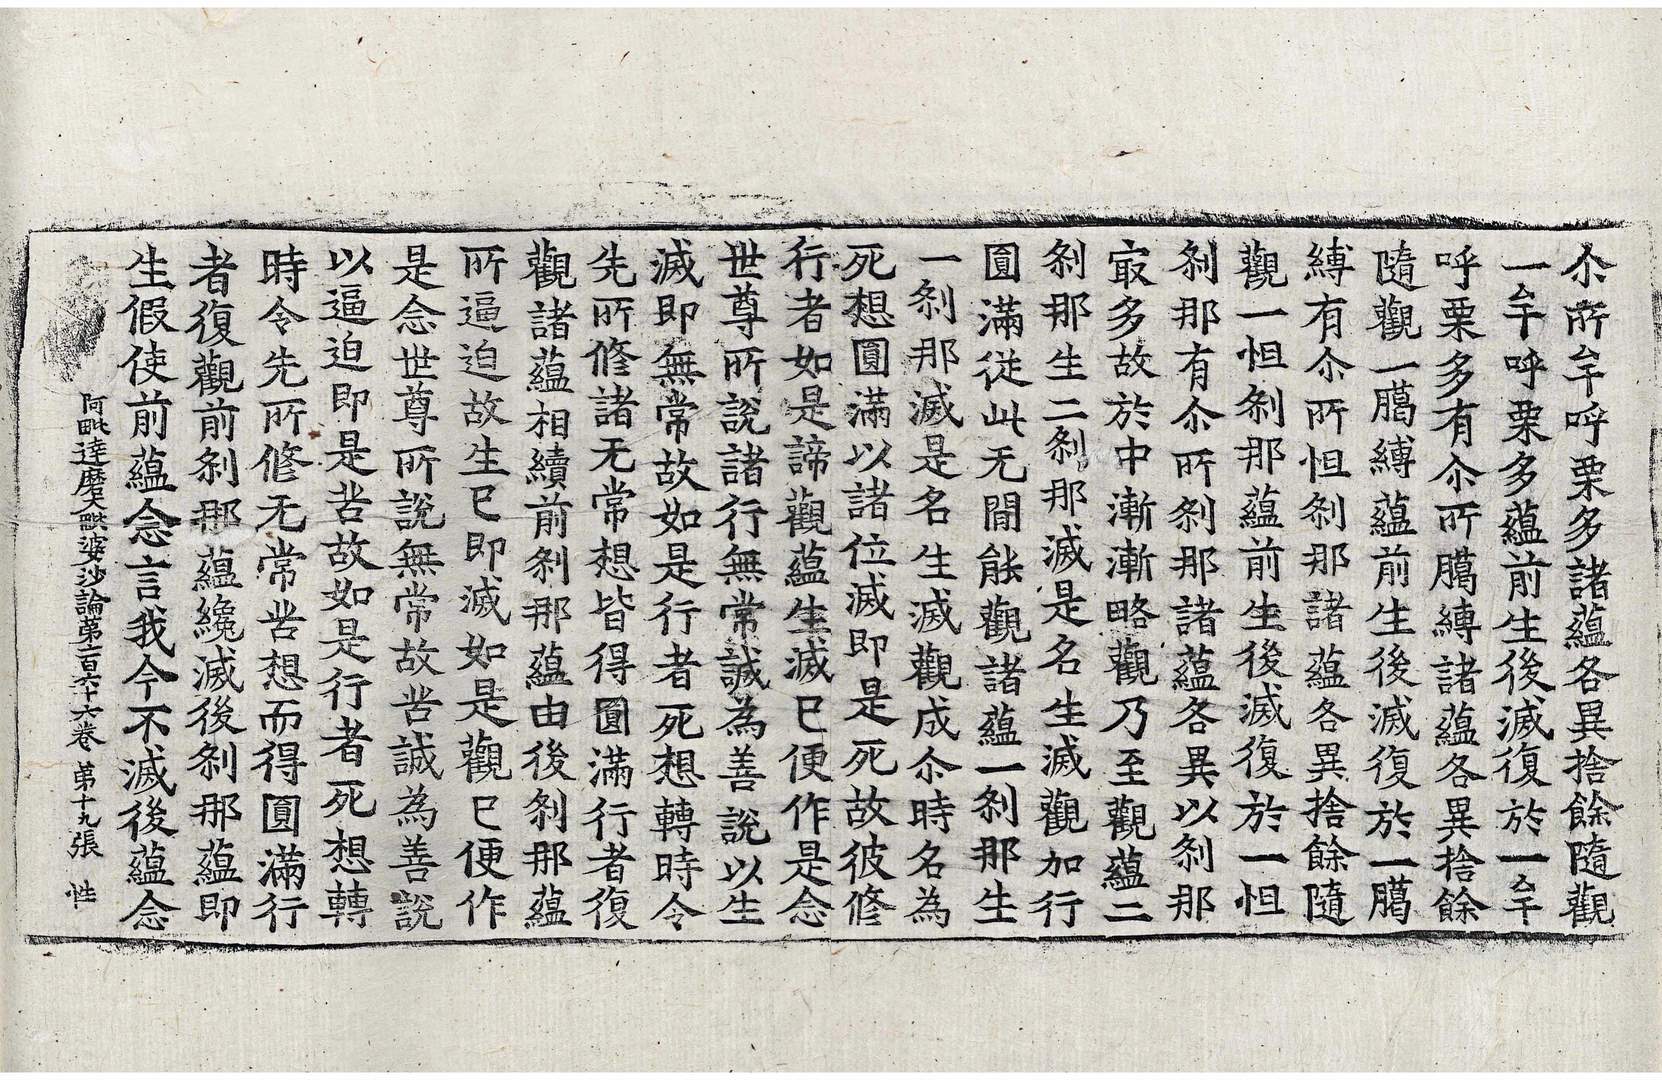 尒所牟呼栗多諸蘊各異捨餘隨觀
一牟呼栗多蘊前生後滅復於一牟
呼栗多有尒所臈縛諸蘊各異捨餘
隨觀一臈縛蘊前生後滅復於一臈
縛有尒所怛刹那諸蘊各異捨餘隨
觀一怛刹那蘊前生後滅復於一怛
刹那有尒所刹那諸蘊各異以刹那
㝡多故於中漸漸略觀乃至觀蘊二
刹那生二刹那滅是名生滅觀加行
圓滿從此无閒能觀諸蘊一刹那生
一刹那滅是名生滅觀成尒時名為
死想圓滿以諸位滅即是死故彼修
行者如是諦觀蘊生滅已便作是念
世尊所說諸行無常誠為善說以生
滅即無常故如是行者死想轉時令
先所修諸无常想皆得圓滿行者復
觀諸蘊相續前刹那蘊由後刹那蘊
所逼迫故生已即滅如是觀已便作
是念世尊所說無常故苦誠為善說
以逼迫即是苦故如是行者死想轉
時令先所修无常苦想而得圓滿行
者復觀前刹那蘊纔滅後刹那蘊即
生假使前蘊念言我今不滅後蘊念
阿毗達磨大毗婆沙論第一百六十六卷 第十九張 性